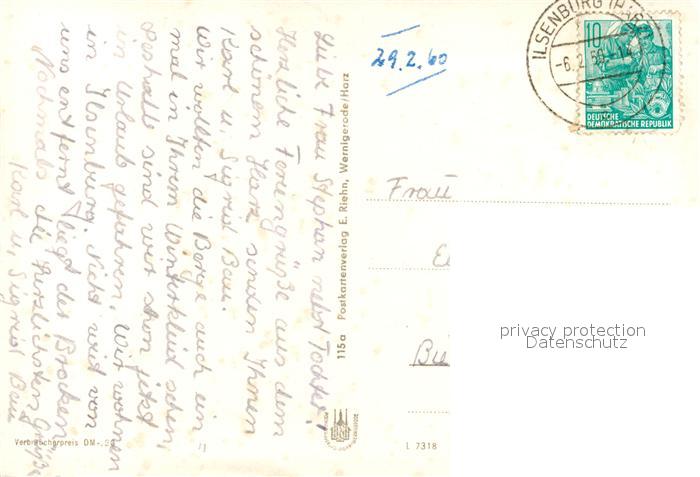 Liebe Frau Stephan nebst Tochter!
Herzliche Feriengrüße aus dem
schönem Harz senden Ihnen
Karl u. Sigrid Bau.
Wir wollten die Berge auch ein
mal in Ihrem Winterkleid sehen,
deshalb sind wir schon jetzt
in Urlaub gefahren. Wir wohnen
in Ilsenburg. Nicht weit von
uns entfernt liegt der Brocken
Nochmals die herzlichsten Grüße
Karl u. Sigrid Bau
Verbraucherpreis DM -,2
115a Postkartenverlag E. Riehn, Wernigerode/Harz
29.2.60
ILSENBURG (HAR
-6.2.
10
DEUTSCHE
DEMOKRATISCHE REPUBLIK
Frau
privacy protection
Datenschutz
L 7318